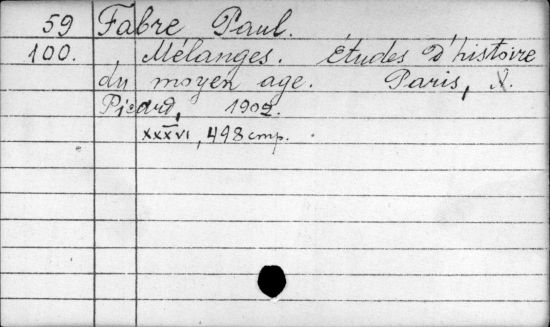 59 Fabre Paul.
100. Mélanges. Études d'histoire
du moyen age. Paris, A.
Picard, 1902.
XXXVI, 498 cmp.